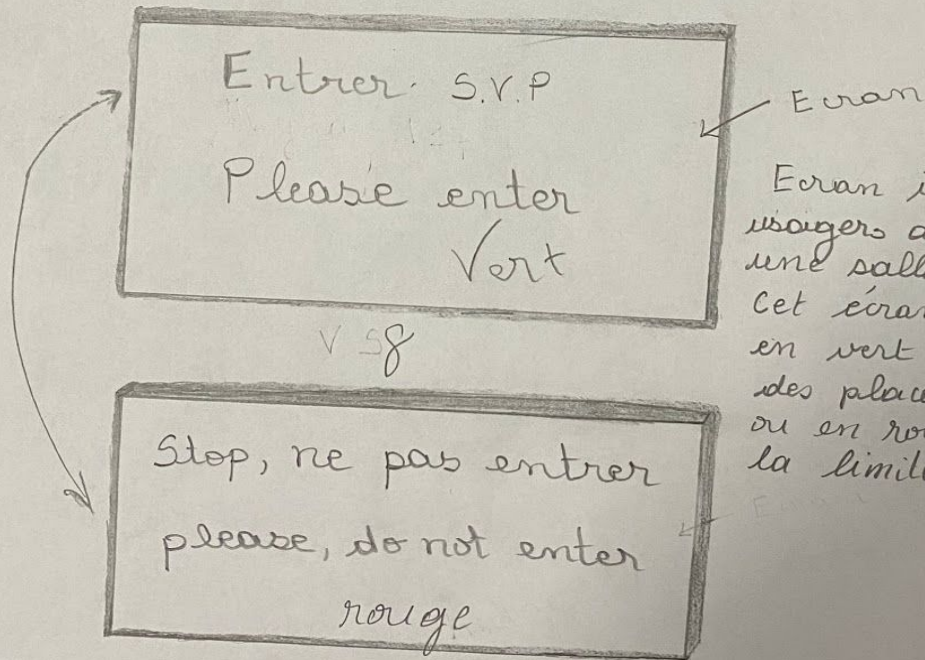 Entrer S.V.P
Please enter
Vert
Ecran
Ecran
usagers
une
Cet
en vert
des
ou en
la
Stop, ne pas entrer
please, do not enter
rouge